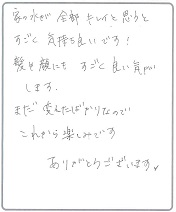 家の水が全部キレイと思うと
すごく気持ち良いです!
髪や顔にもすごく良い気が
します。
まだ変えたばかりなので
これから楽しみです
ありがとうございます。